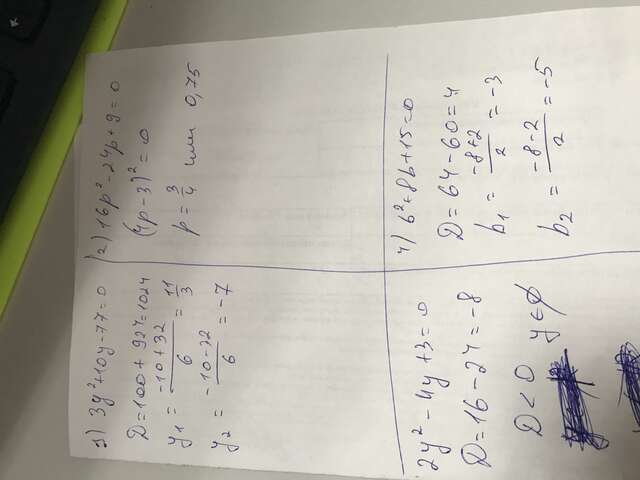 1) 3y²+10y-77=0
D=100+924=1024
y₁ = -10+32/6 = 11/3
y₂ = -10-32/6 = -7
2) 16p²-24p+9=0
(4p-3)²=0
p=3/4 или 0,75
2y²-4y+3=0
D=16-24=-8
D<0 y∈∅
4) b²+8b+15=0
D=64-60=4
b₁ = -8+2/2 = -3
b₂ = -8-2/2 = -5